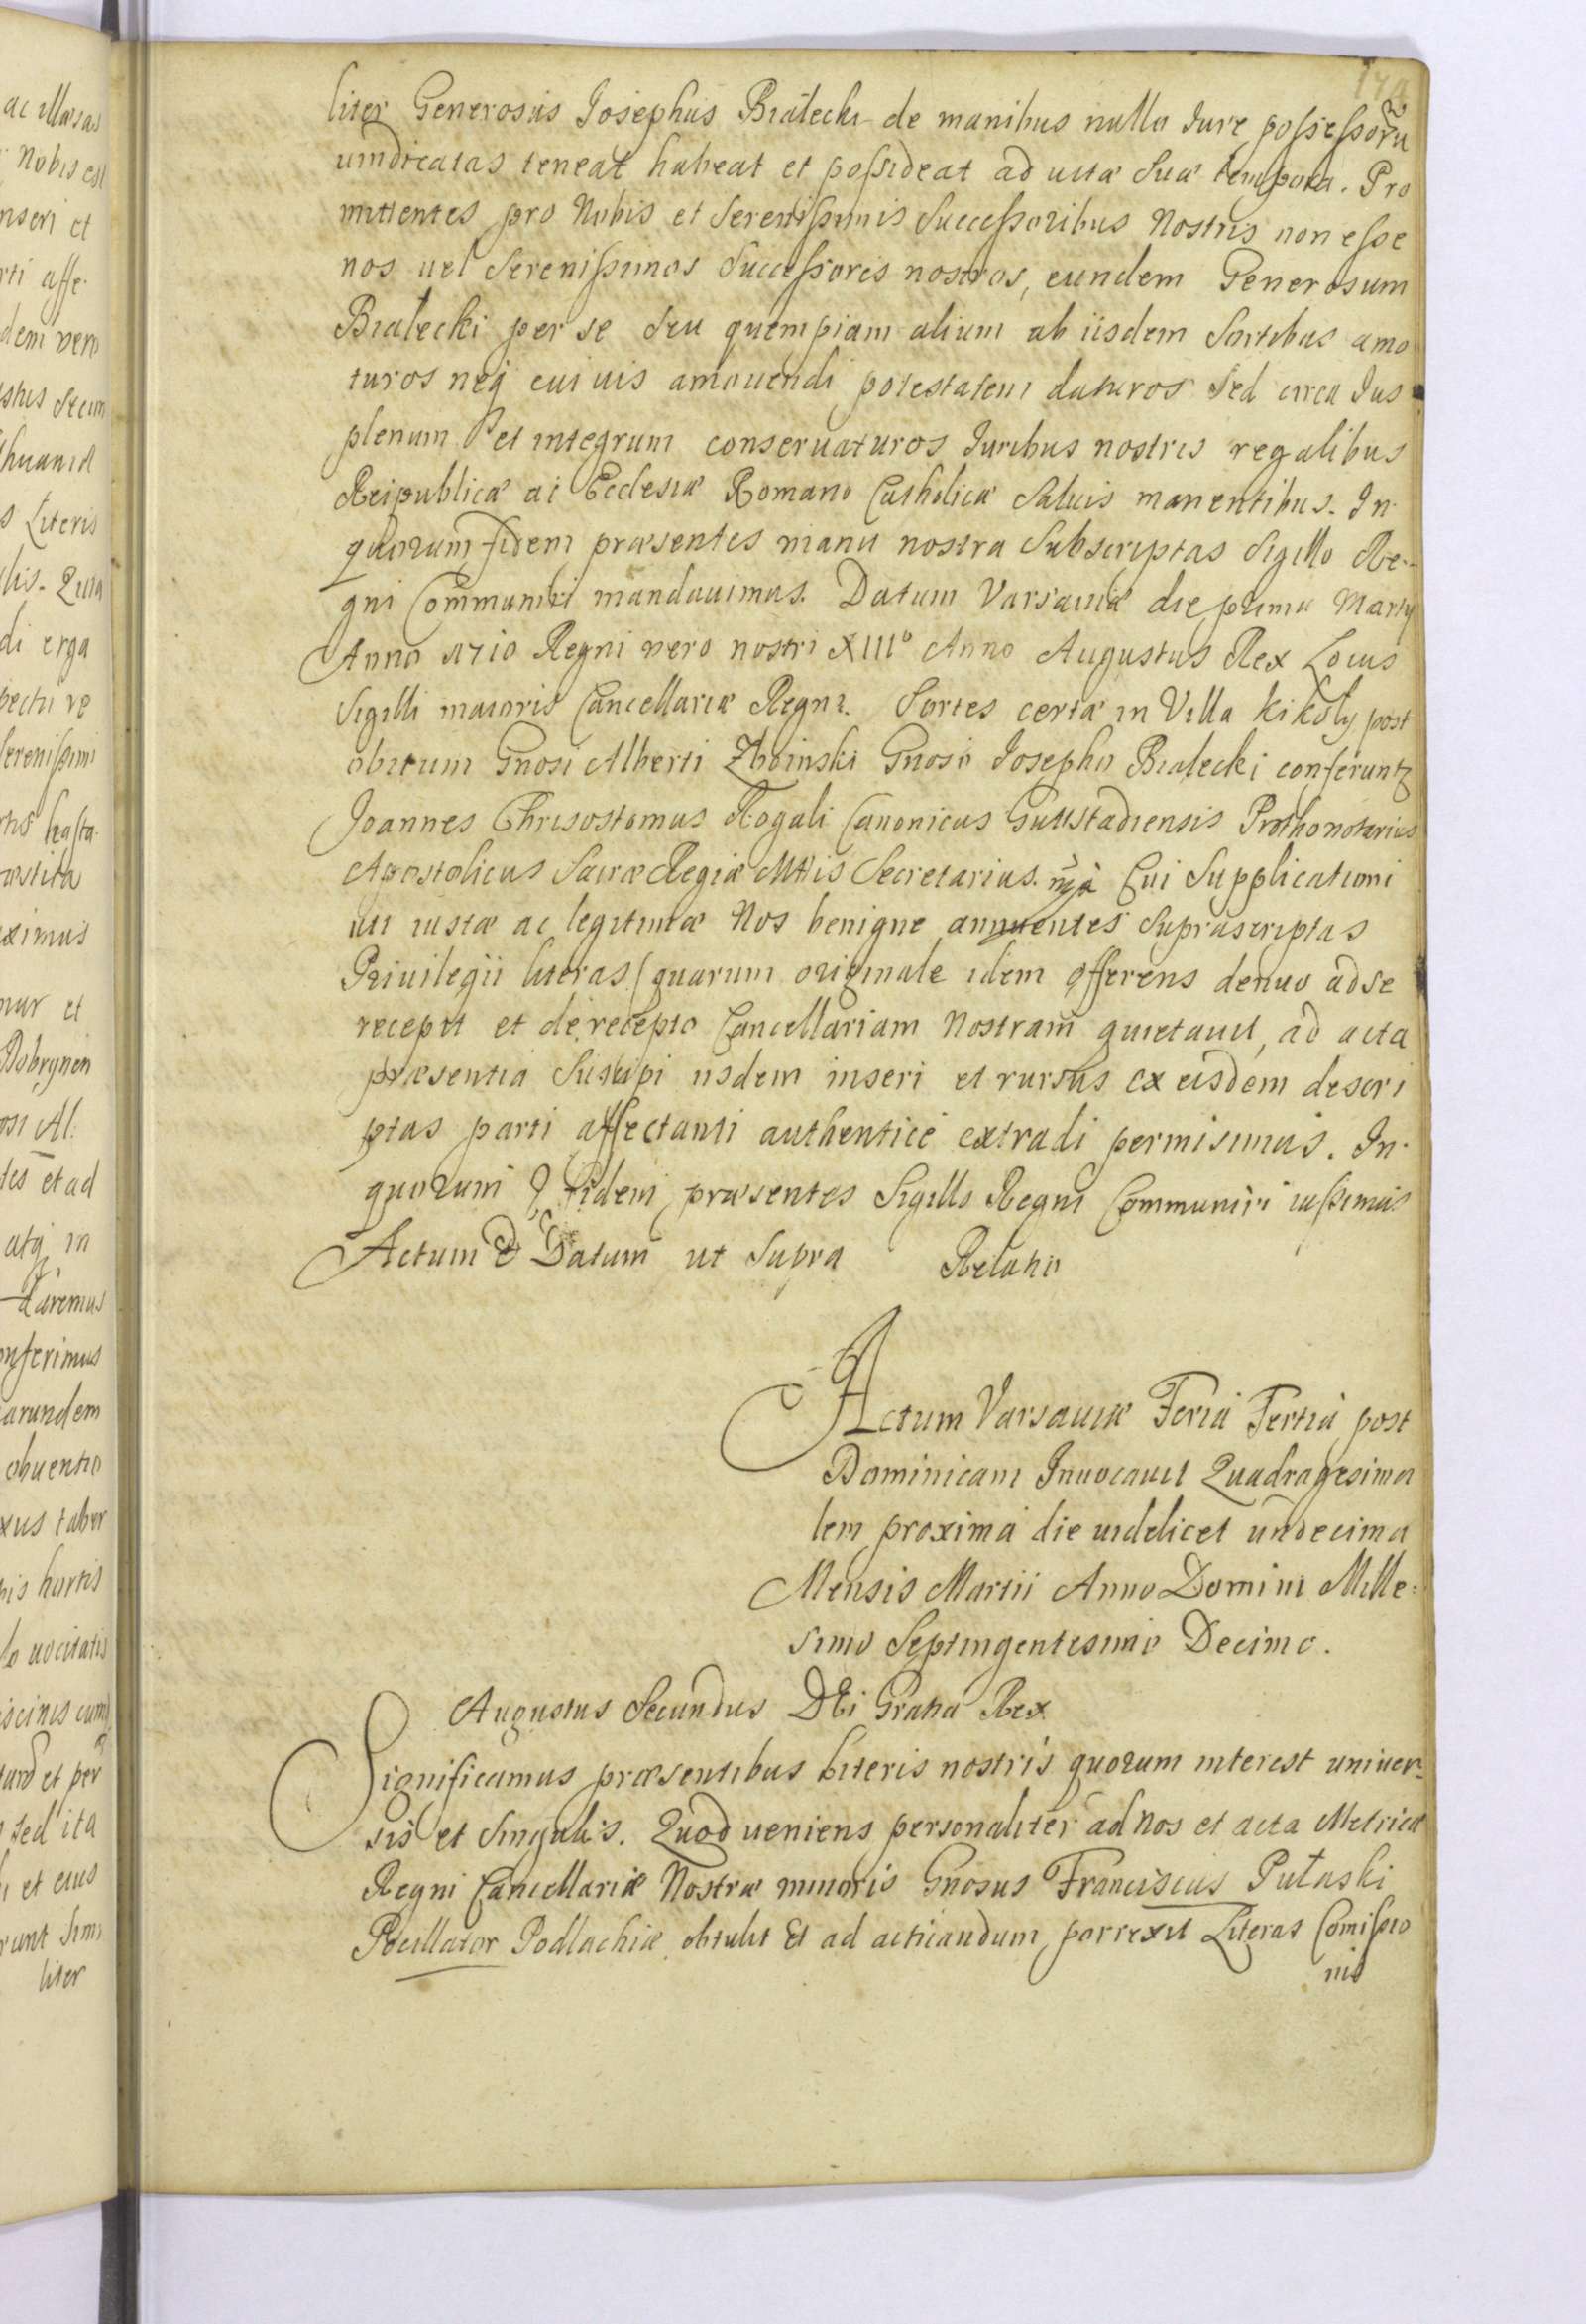 174
liter Generosus Josephus Białecki de manibus nullo Iure possessorũ
uindicatas teneat habeat et possideat ad uitæ suæ tempora. Pro
mittentes pro Nobis et Serenissimis Successoribus Nostris non esse
nos uel Serenissimos Successores nostros, eundem Generosum
Białecki per se seu quempiam alium ab iisdem Sortibus amo
turos neq cuiuis amouendi potestatem daturos sed circa Ius
plenum et integrum conseruaturos Iuribus nostris regalibus
Reipublicæ ac Ecclesiæ Romano Catholicæ Saluis manentibus. In
quorum fidem præsentes manu nostra Subscriptas Sigillo Re-
gni Communiri mandauimus. Datum Varsauiæ die prima Marty
Anno 1710 Regni vero nostri XIIIº Anno Augustus Rex Locus
Sigilli maioris Cancellariæ Regni. Sortes certæ in Villa Kikoły post
obitum Gnosi Alberti Zboinski Gnoso Josepho Białecki conferuntz
Joannes Chrisostomus Rogali Canonicus Guttstadiensis Prothonotarius
Apostolicus Sacræ Regiæ Mttis Secretarius. mp̃ Cui Supplicationi
uti iustæ ac legitimæ Nos benigne annuentes Suprascriptas
Priuilegii literas (quarum originale idem offerens denuo ad se
recepit et de recepto Cancellariam Nostram quietauit, ad acta
præsentia Suscipi iisdem inseri et rursus ex eisdem descri
ptas parti affectanti authentice extradi permisimus. In
quorum fidem præsentes Sigillo Regni Communiri iussimus
Actum & Datum ut Supra Relatio
Actum Varsauiæ Feria Tertia post
Dominicam Inuocauit Quadragesima
lem proxima die uidelicet undecima
Mensis Martii Anno Domini Mille-
simo Septingentesimo Decimo.
Augustus Secundus DEi Gratia Rex
Significamus præsentibus Literis nostris quorum interest univer-
sis et Singulis. Quod ueniens personaliter ad Nos et acta Metricæ
Regni Cancellariæ Nostræ minoris Gnosus Franciscus Pułaski
Pocillator Podlachiæ obtulit Et ad acticandum porrexit Literas Comissio
nis